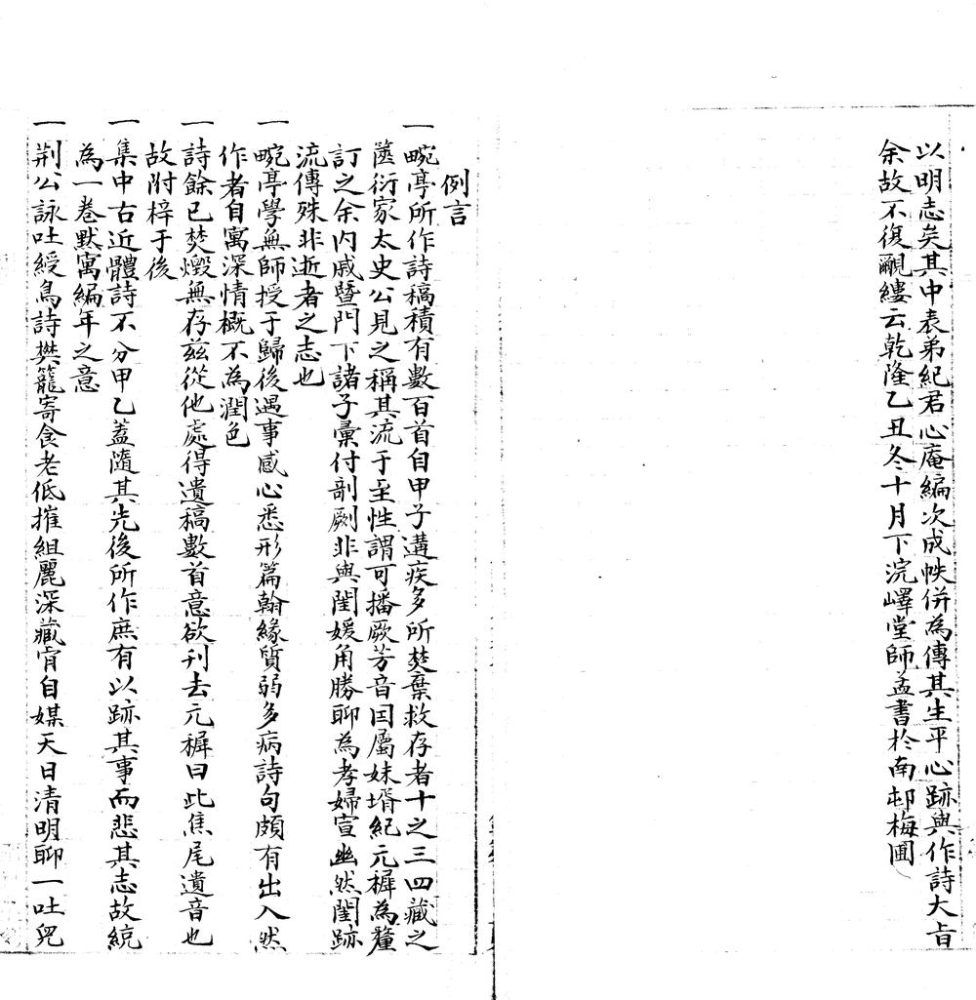 以明志矣其中表弟紀君心庵編次成帙併為傳其生平心跡與作詩大旨
余故不復覼縷云乾隆乙丑冬十月下浣嶧堂師孟書於南邨梅圃
例言
一畹亭所作詩稿積有數百首自甲子遘疾多所焚棄救存者十之三四藏之
篋衍家太史公見之稱其流于至性謂可播厥芳音因屬妹壻紀元樨為釐
訂之余內戚暨門下諸子彙付剞劂非與閨媛角勝聊為孝婦宣幽然閨跡
流傳殊非逝者之志也
一畹亭學無師授于歸後遇事感心悉形篇翰緣質弱多病詩句頗有出入然
作者自寓深情概不為潤色
一詩餘已焚燬無存茲從他處得遺稿數首意欲刊去元樨曰此焦尾遺音也
故附梓于後
一集中古近體詩不分甲乙蓋隨其先後所作庶有以跡其事而悲其志故統
為一卷默寓編年之意
一荆公詠吐綬鳥詩樊籠寄食老低摧組麗深藏肯自媒天日清明聊一吐兒